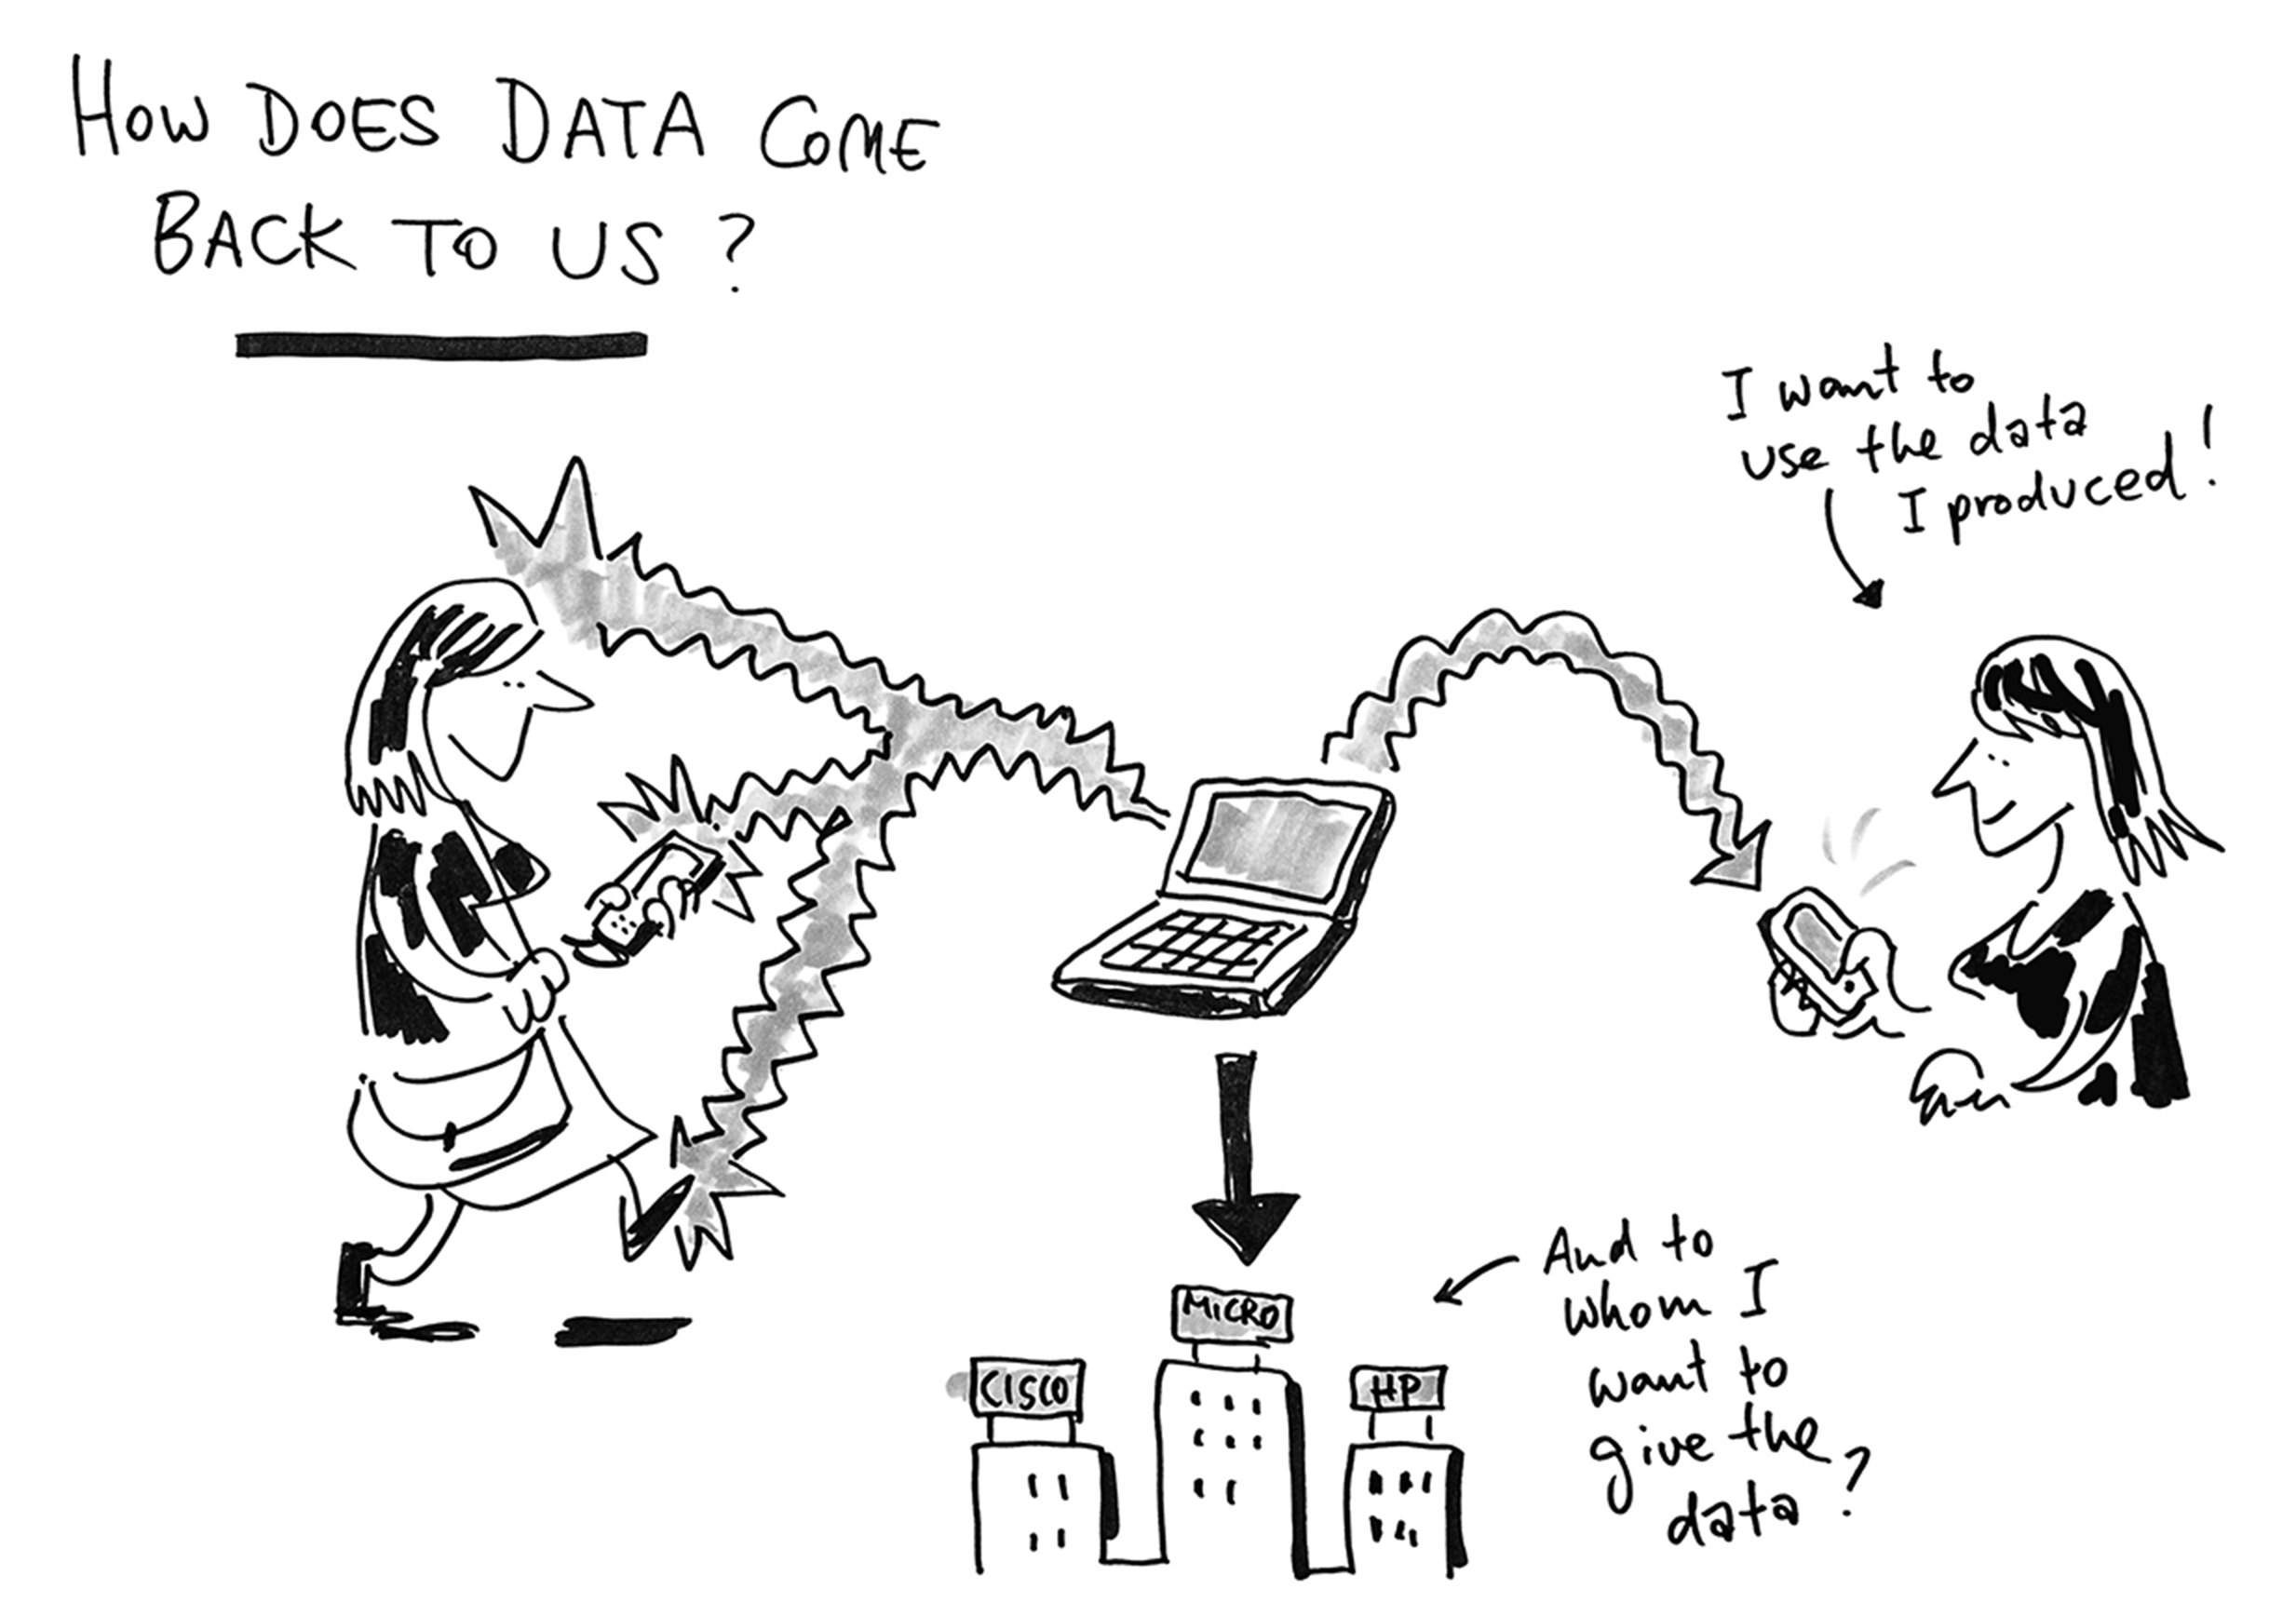 HOW DOES DATA COME
BACK TO US?
I want to
use the data
I produced!
MICRO
CISCO
HP
And to
whom I
want to
give the
data?